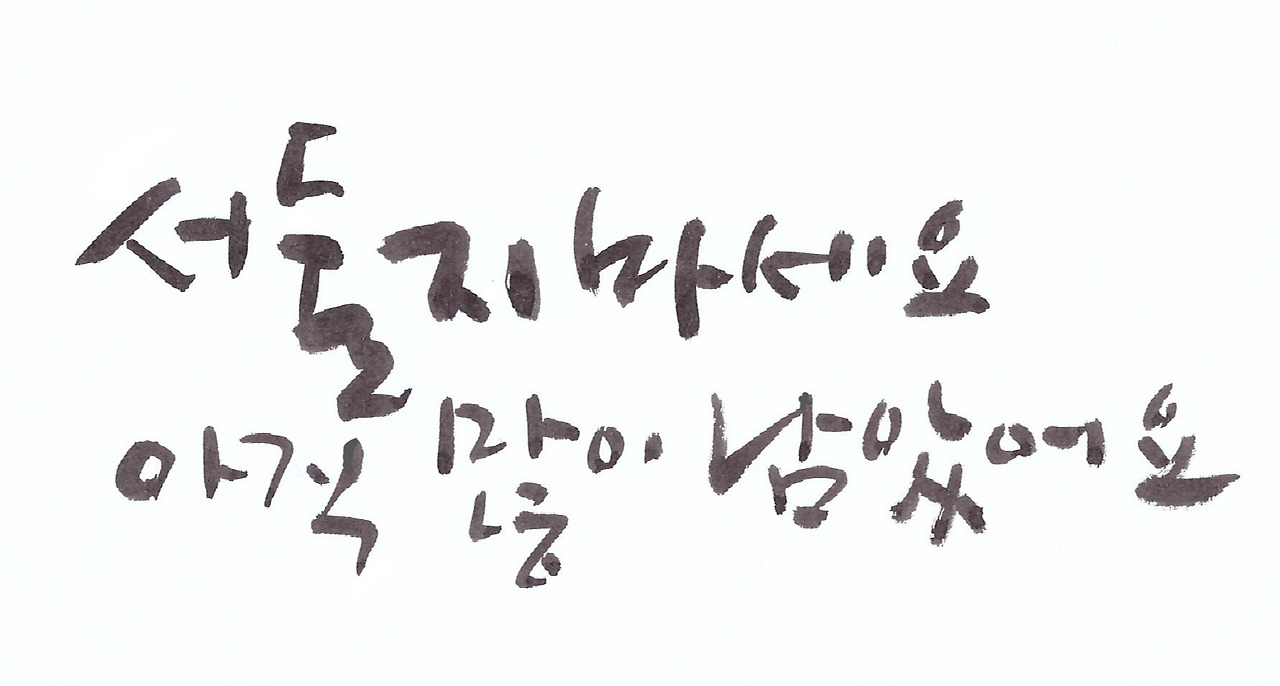 서둘지 마세요
아직 많이 남았어요